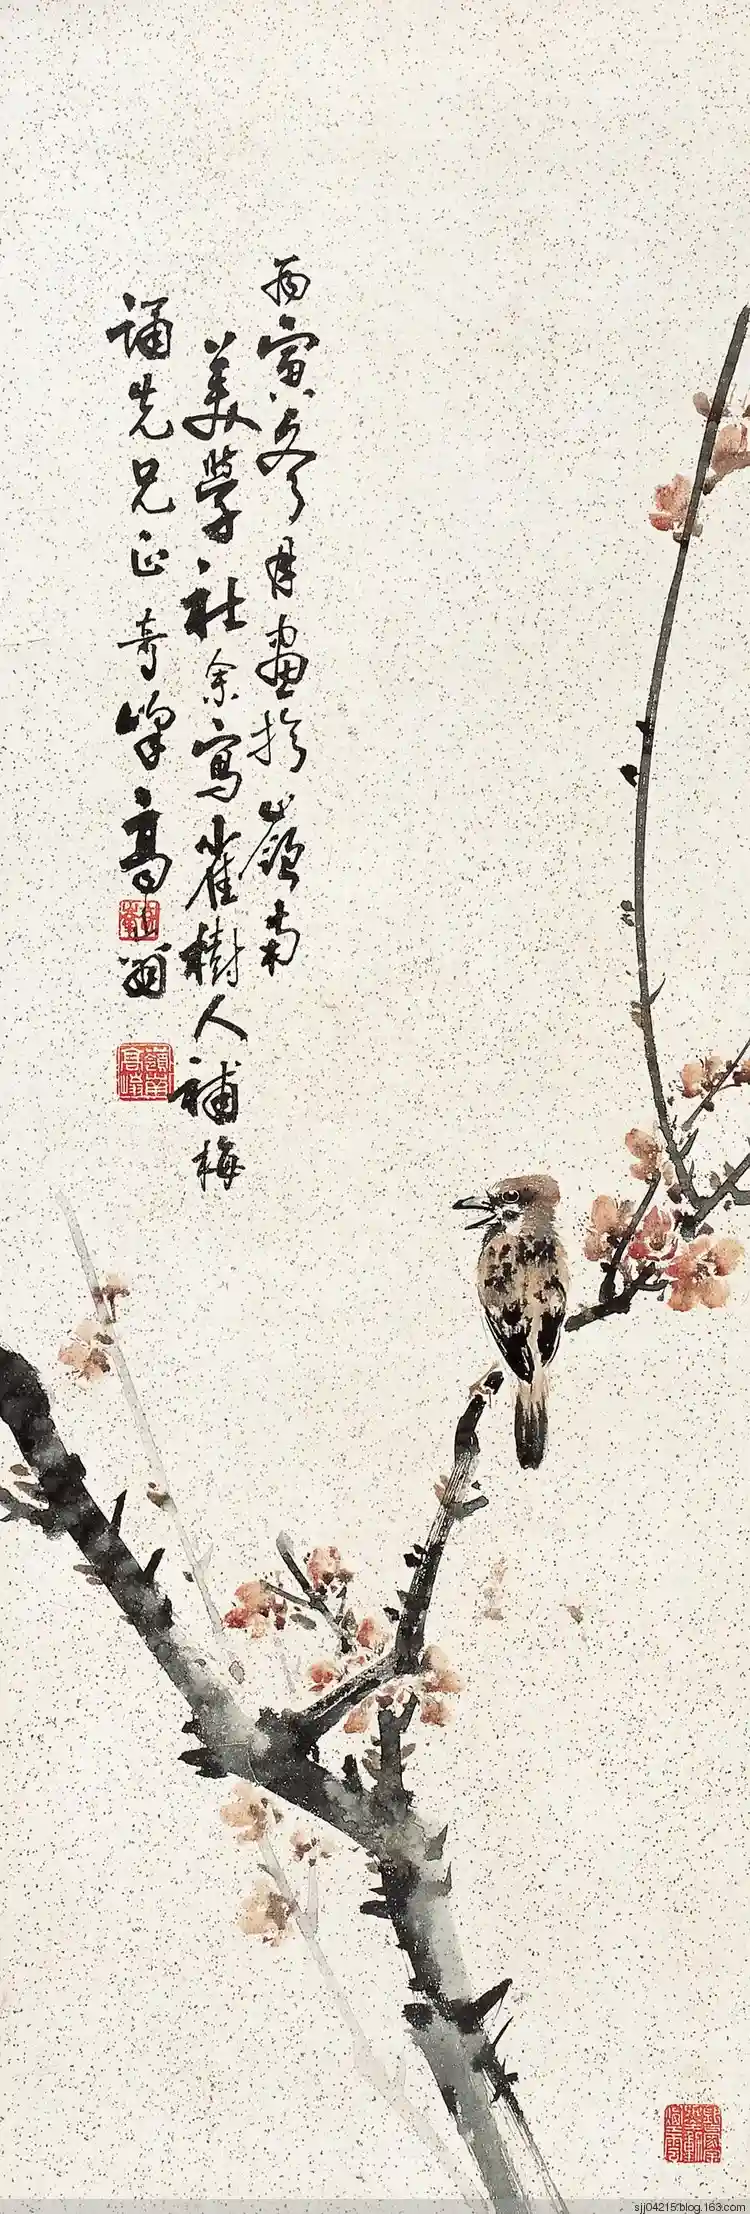 丙寅冬月畫於嶺南
美學社余寫雀樹人補梅
誦先兄正奇峰高嵡
sjj04215.blog.163.com